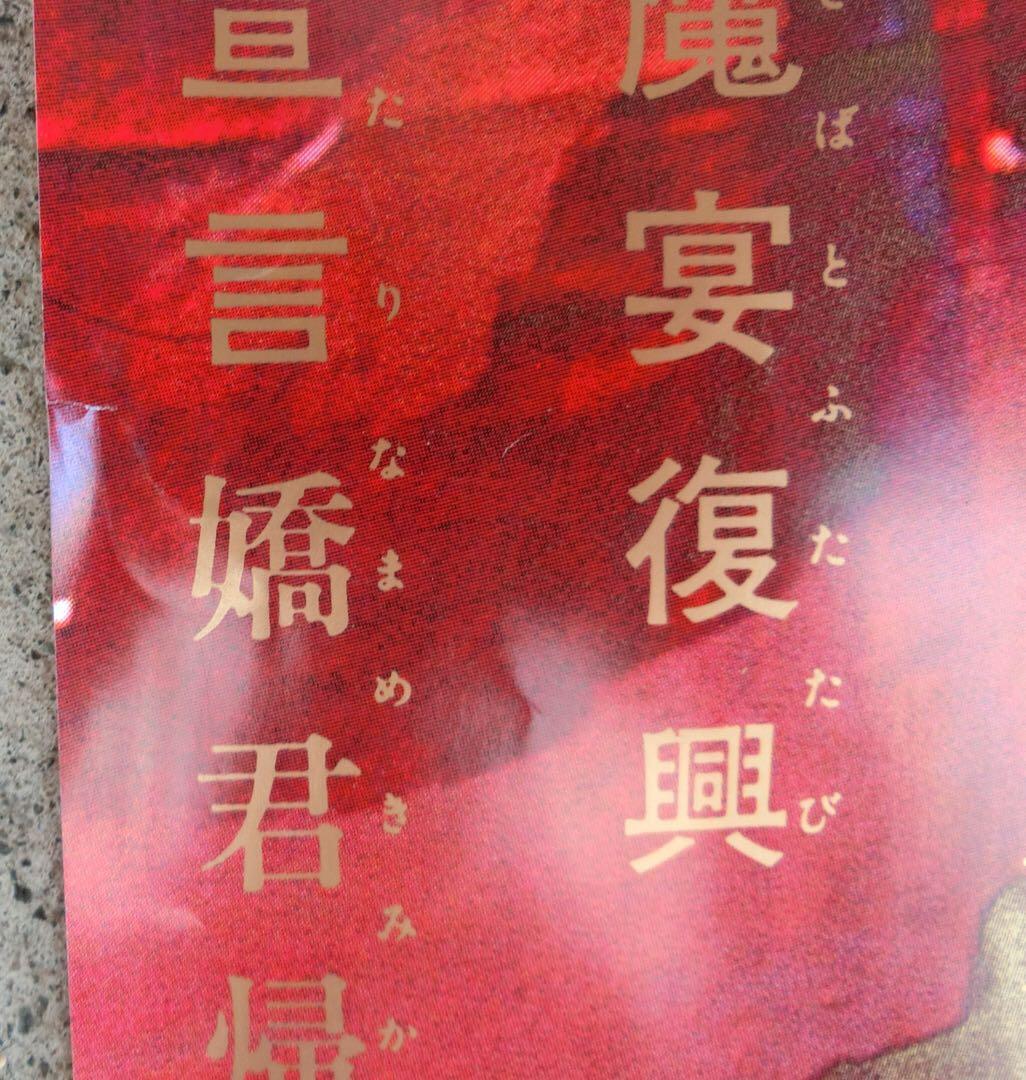 魔宴復興
ばとふたたび
言嬌君帰
たりなまめきみか